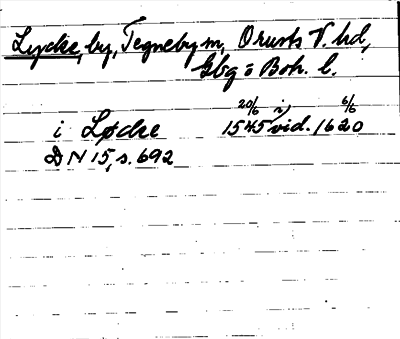 Lycke, by, Tegneby sn, Orusts V. hd,
Gbg o Boh. l.
i Løcke 1545 20/6 i vid. 1620 6/6
DN 15, s. 692